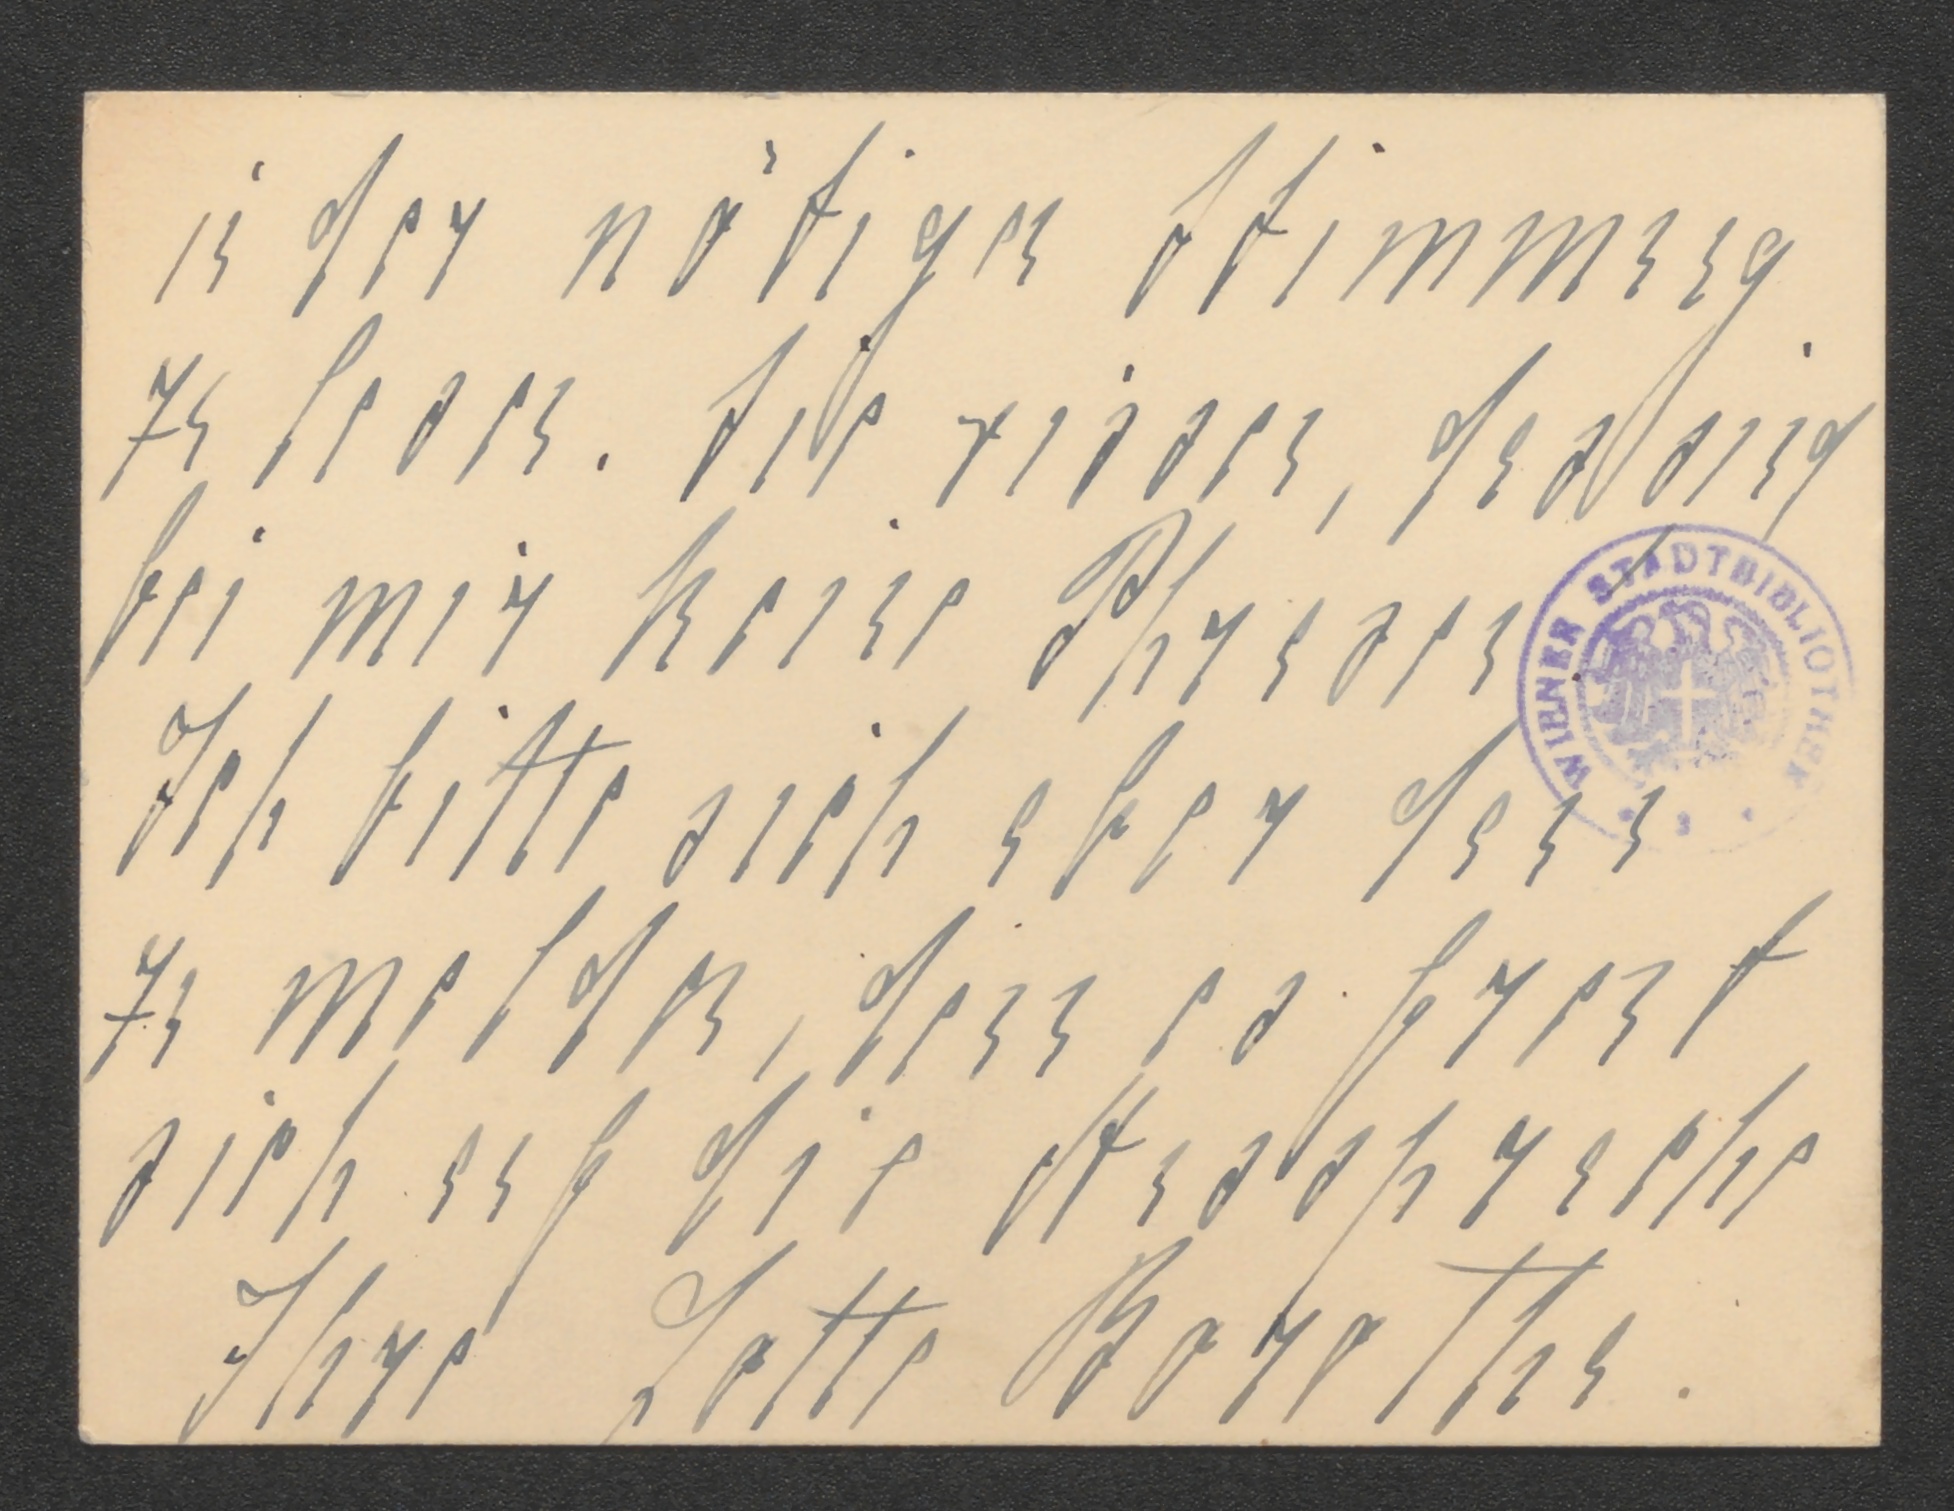 in der nötigen Stimmung
zu lesen. Sie wissen, das sind
bei mir keine Phrasen.
Ich bitte sich aber dann
zu melden, denn es freut
sich auf die Aussprache
Ihre Lotte
WIENER STADTBIBLIOTHEK